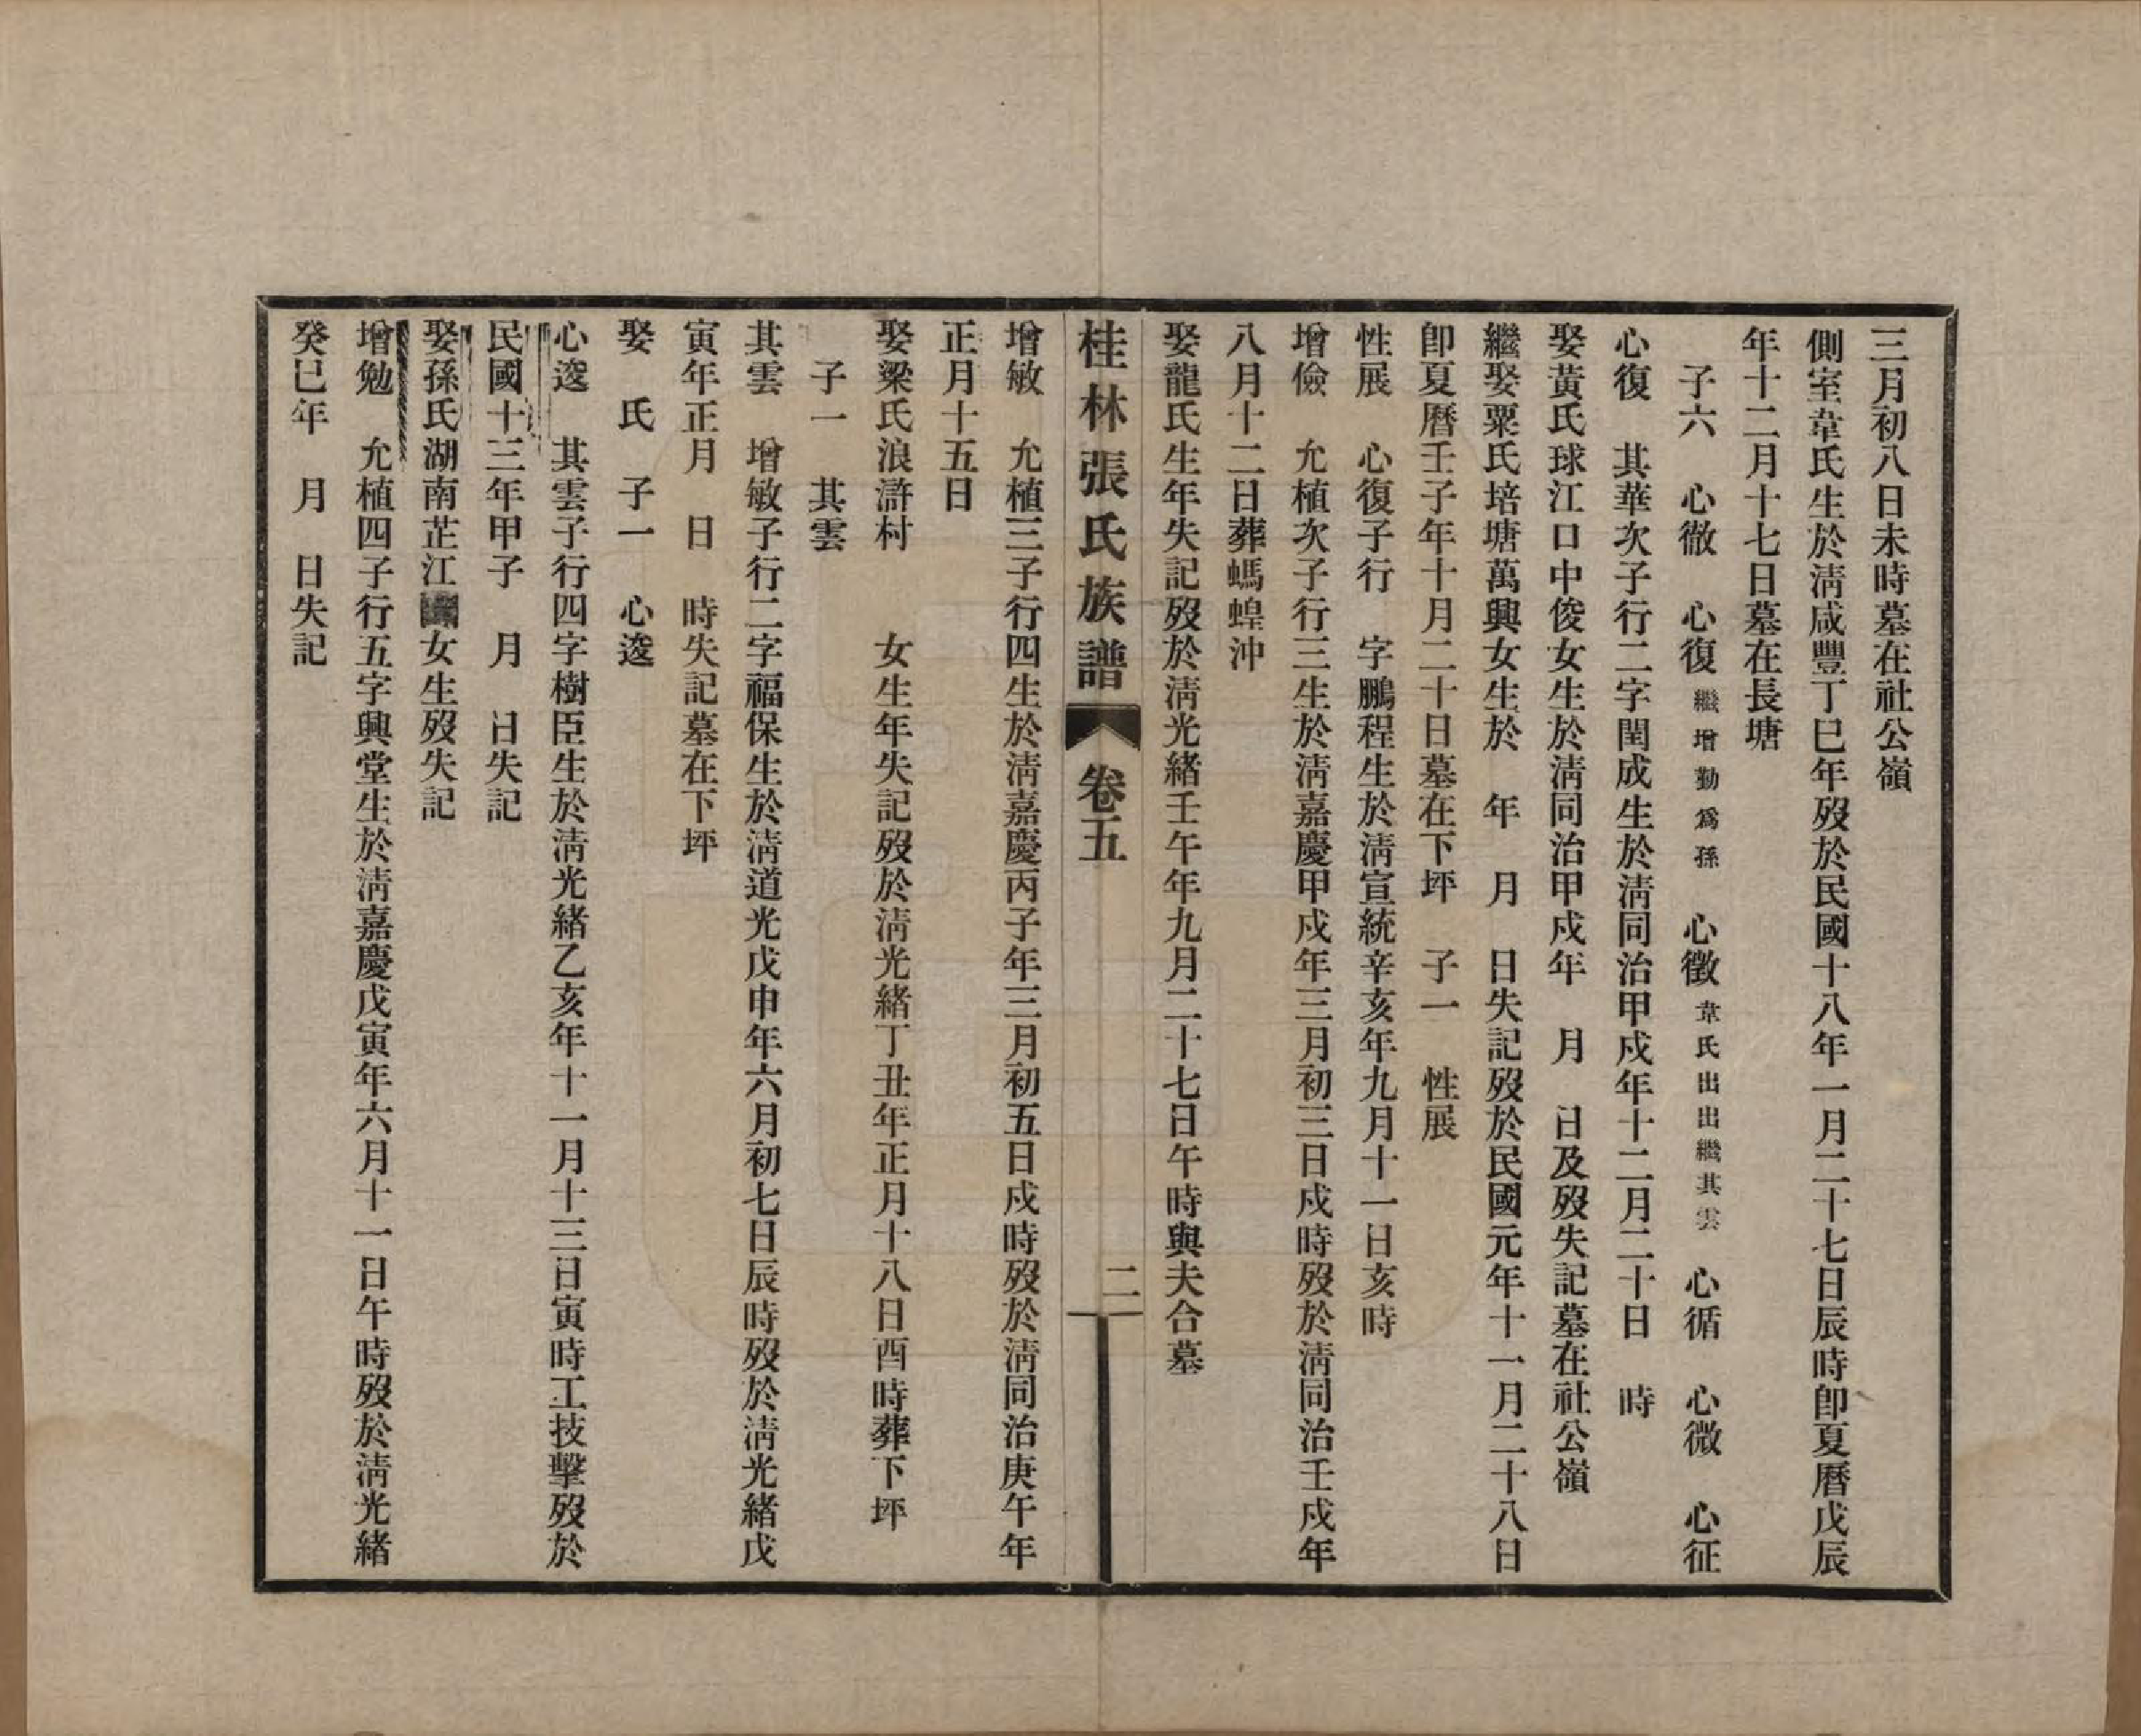 三月初八日未時墓在社公嶺
側室韋氏生於淸咸豐丁巳年歿於民國十八年一月二十七日辰時卽夏曆戊辰
年十二月十七日墓在長塘
子六　心徹　心復繼增勤爲孫　心徵韋氏出出繼其雲　心循　心微　心征
心復　其華次子行二字閏成生於淸同治甲戌年十二月二十日　時
娶黃氏球江口中俊女生於淸同治甲戌年　月　日及歿失記墓在社公嶺
繼娶粟氏培塘萬興女生於　年　月　日失記歿於民國元年十一月二十八日
卽夏曆壬子年十月二十日墓在下坪　子一　性展
性展　心復子行　字鵬程生於淸宣統辛亥年九月十一日亥時
增儉　允植次子行三生於淸嘉慶甲戌年三月初三日戌時歿於淸同治壬戌年
八月十二日葬螞蝗沖
娶龍氏生年失記歿於淸光緒壬午年九月二十七日午時與夫合墓
桂林張氏族譜　卷五　二
增敏　允植三子行四生於淸嘉慶丙子年三月初五日戌時歿於淸同治庚午年
正月十五日
娶梁氏浪滸村　女生年失記歿於淸光緒丁丑年正月十八日酉時葬下坪
子一　其雲
其雲　增敏子行二字福保生於淸道光戊申年六月初七日辰時歿於淸光緒戊
寅年正月　日　時失記墓在下坪
娶　氏　子一　心逡
心逡　其雲子行四字樹臣生於淸光緒乙亥年十一月十三日寅時工技擊歿於
民國十三年甲子　月　日失記
娶孫氏湖南芷江女生歿失記
增勉　允植四子行五字興堂生於淸嘉慶戊寅年六月十一日午時歿於淸光緒
癸巳年　月　日失記